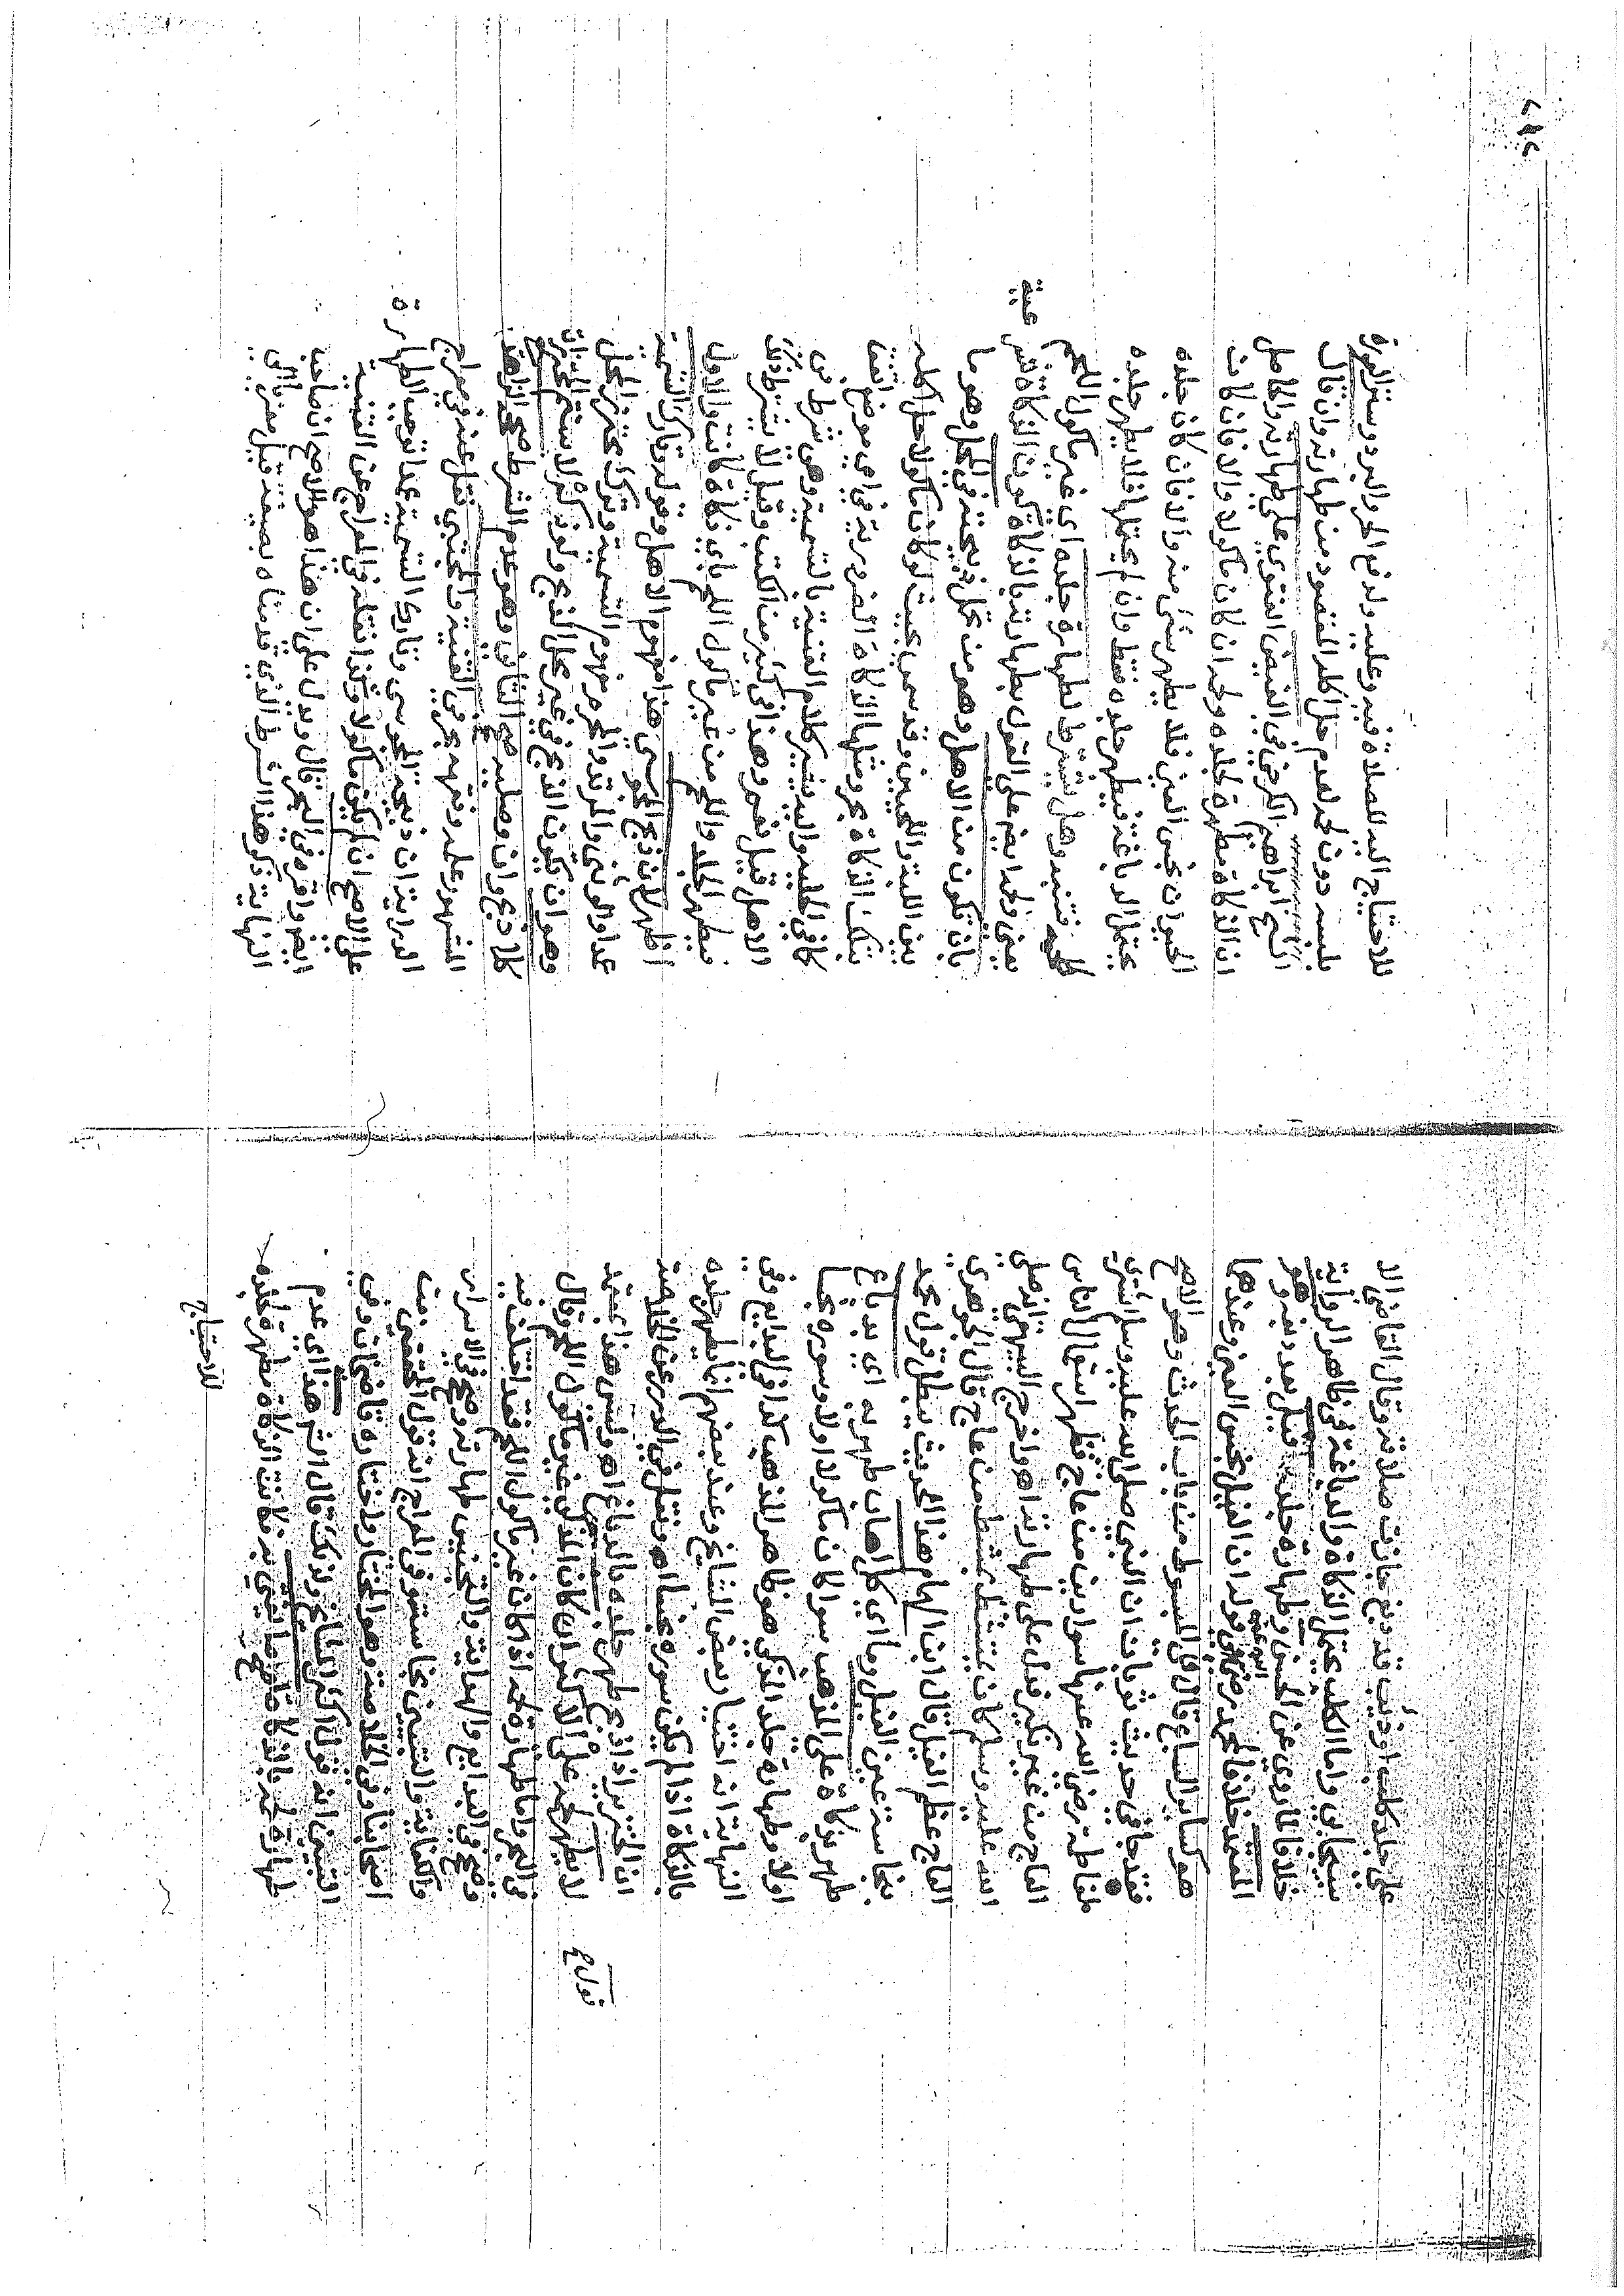 على جلد كلب او ذئب قد ذبح جازت صلاته وقال القاضي الا
سبيجابي واما الكلب يحتمل الذكاة والدباغة في ظاهر الرواية
خلافا لما روي عن الحسن وطهارة جلد فيل بعد دبغه وهو
المعتمد خلافا لمحمد رضي الله عنه في قوله ان الفيل نجس العين وعندهما
هو كسائر السباع قال في المبسوط من باب الحدث وهو الاصح
فقد جاء في حديث ثوبان ان النبي صلى الله عليه وسلم اشترى
لفاطمة رضي الله عنها سوارين من عاج فظهر استعمال الناس
العاج من غير نكير فدل على طهارته اهـ واخرج البيهقي انه صلى
الله عليه وسلم كان يمتشط بمشط من عاج قال الجوهري
العاج عظم الفيل قال ابن الهمام هذا الحديث يبطل قول محمد
بنجاسة عين الفيل وما اي كل اهاب طهر به اي بدباغ
طهر بذكاة على المذهب سواء كان مأكولا اولا وسوره نجسا
اولا وطهارة جلد المذكى هو ظاهر المذهب كما في البدايع وفي
النهاية انه اختيار بعض المشايخ وعند بعضهم انما يطهر جلده
بالذكاة اذا لم يكن سوره نجسا اهـ ونقل في الدرر عن الخلاصة
ان الخنزير اذا ذبح طهر جلده بالدباغ اهـ وليس هذا بمعتمد
لا يطهر لحمه على الاكثر ان كان المذكى غير مأكول اللحم قال
في البحر واما طهارة لحمه اذا كان غير مأكول اللحم فقد اختلف فيه
وصحح في البدايع والهداية والتجنيس طهارته وصحح في الاسرار
والكفاية والتبيين نجاسته وفي المعراج انه قول المحققين من
اصحابنا وفي الخلاصة وهو المختار واختاره قاضيخان وفي
التبيين انه قول اكثر المشايخ ولذلك قال الشم هذا اي عدم
طهارة لحمه بالذكاة اصح ما يفتى به فكانت الذكاة مطهرة لجلده
للاحتياج
للاحتياج اليه للصلاة فيه وعليه ولدفع الحر والبرد وستر العورة
بلبسه دون لحمه لعدم حل اكله المقصود من طهارته وان قال
الشيخ ابراهيم الكركي في الفيض الفتوى على طهارته والحاصل
ان الذكاة مطهرة لجلده ولحمه ان كان مأكولا والا فان كان
الحيوان نجس العين فلا يطهر شئ منه والا فان كان جلده
يحتمل الدباغة فيطهر جلده فقط وان لم يحتملها فلا يطهر جلده
فتنبه وهل يشترط لطهارة جلده اي غير مأكول اللحم
يعني ولحمه ايضا على القول بطهارته بالذكاة كون الذكاة شرعية
بان تكون من الاهل وهو من تحل ذبيحته في المحل وهو ما
بين اللبة واللحيين وقد سمى بحيث لو كان مأكولا حل اكله
بتلك الذكاة بجروحها الذكاة الضرورية في اي موضع اتفق
كما في الحلبة واليه يشير كلام القنية بالتسمية وهي شرط من
الاهل قيل نعم وهذا في كثير من الكتب وقيل لا يشترط ذلك
فيطهر الجلد واللحم من غير مأكول اللحم باي ذكاة كانت والاول
اظهر لان ذبح المجوسي هذا مفهوم الاهل وقوله وتارك التسمية
عمدا والوثني والمرتد والمحرم مفهوم التسمية وترك محترز المحل
وهو ان يكون الذبح في غير محل الذبح
كلا ذبح وان وصلية صحح الثاني وهو عدم الشرط صححه الزاهدي
الشهير بعلمه وتقوه بحر في القنية والمجتبى نقل عنه في معراج
الدراية ان ذبيحة المجوسي وتارك التسمية عمدا توجب الطهارة
على الاصح ان لم يكن مأكولا وكذا نقله في المعراج عن القنية
ايضا واقره في البحر قال ويدل على ان هذا هو الاصح ان صاحب
النهاية ذكر هذا الشرط الذي قدمناه بصيغة قيل معزيا الى